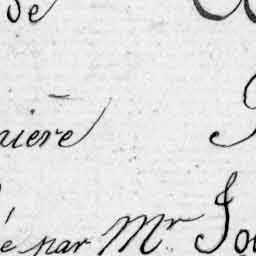 de
nière
é par Mr Jou